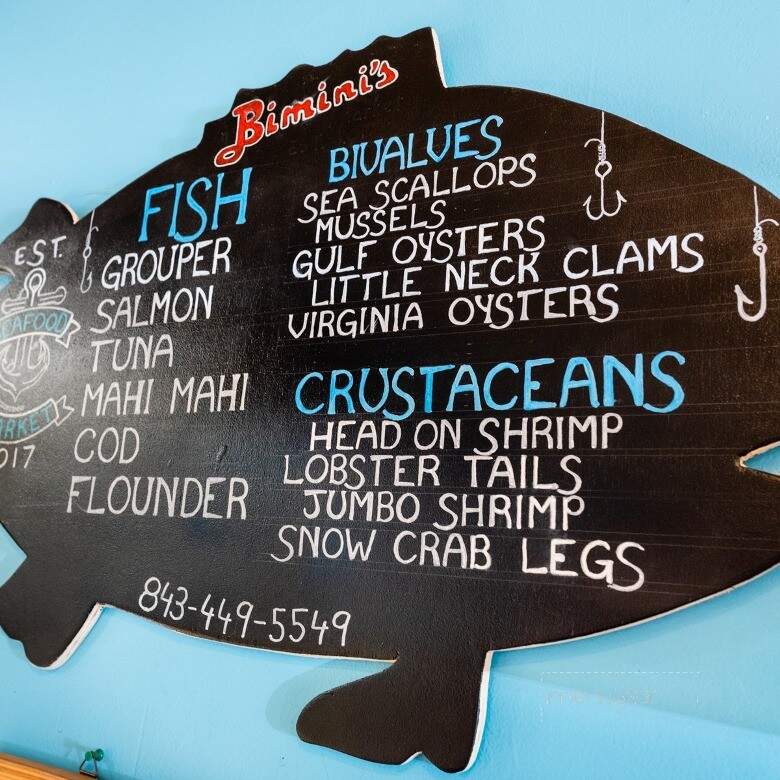 Bimini's
EST.
SEAFOOD
MARKET
2017
FISH
GROUPER
SALMON
TUNA
MAHI MAHI
COD
FLOUNDER
BIVALVES
SEA SCALLOPS
MUSSELS
GULF OYSTERS
LITTLE NECK CLAMS
VIRGINIA OYSTERS
CRUSTACEANS
HEAD ON SHRIMP
LOBSTER TAILS
JUMBO SHRIMP
SNOW CRAB LEGS
843-449-5549